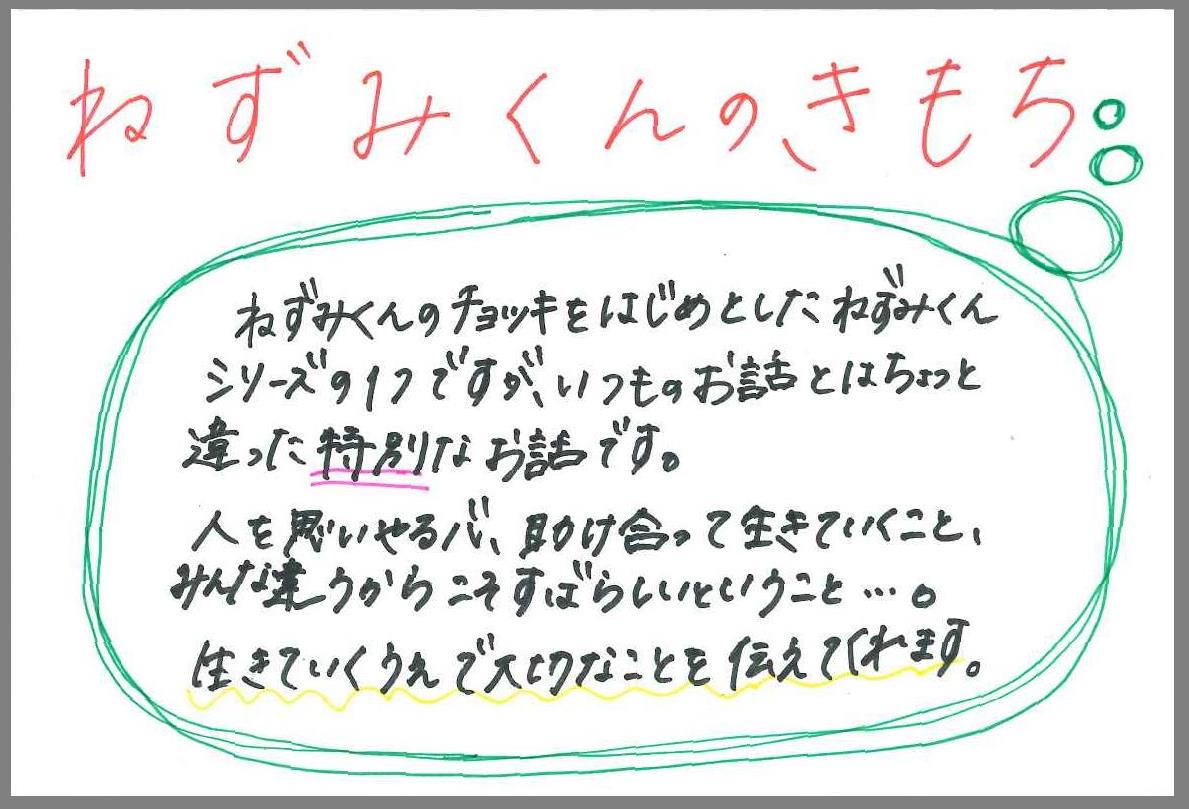 ねずみくんのきもち
ねずみくんのチョッキをはじめとしたねずみくん
シリーズの1つですが、いつものお話とはちょっと
違った特別なお話です。
人を思いやる心、助け合って生きていくこと、
みんな違うからこそすばらしいということ…。
生きていくうえで大切なことを伝えてくれます。